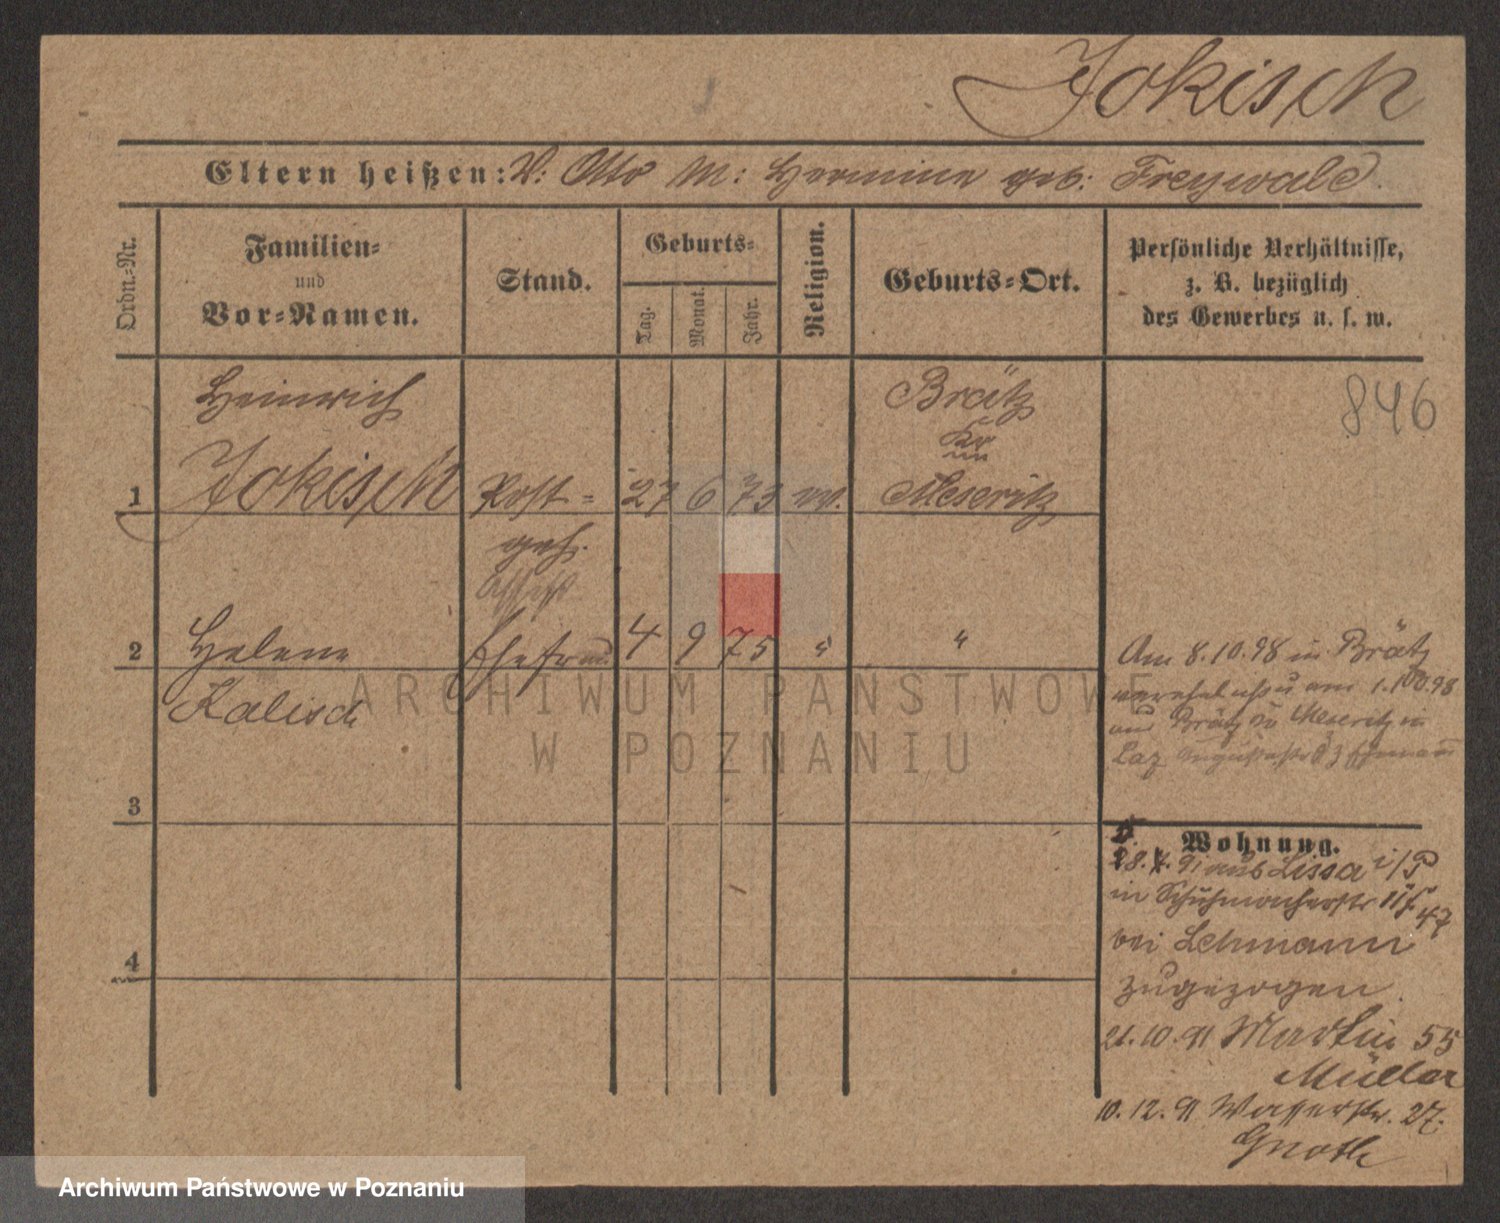 Jokisch
Eltern heißen: V: Otto M: Hermine geb: Freywald.
Ordn.-Nr.
Familien- und Vor-Namen.
Stand.
Geburts-
Tag.
Monat.
Jahr.
Religion.
Geburts-Ort.
Persönliche Verhältnisse,
z. B. bezüglich
des Gewerbes u. s. w.
846
Heinrich
Brätz
Kr
1 Jokisch Post- 27 6 73 ev. Meseritz
geh.
2 Helene Ehefrau 4 9 75 " "
Kalisch
Am 8.10.98 in Brätz
verehelicht u am 1.10.98
Brätz Kr Meseritz in
Laz
3
Wohnung.
28. 7. 91 aus Lissa i/P
in Schuhmacherstr 11
47
bei Lehmann
zugezogen.
21.10.91 Martin 55
Müller
10.12.91 Wasserstr. 27.
Gnoth
4
ARCHIWUM PAŃSTWOWE
W POZNANIU
Archiwum Państwowe w Poznaniu